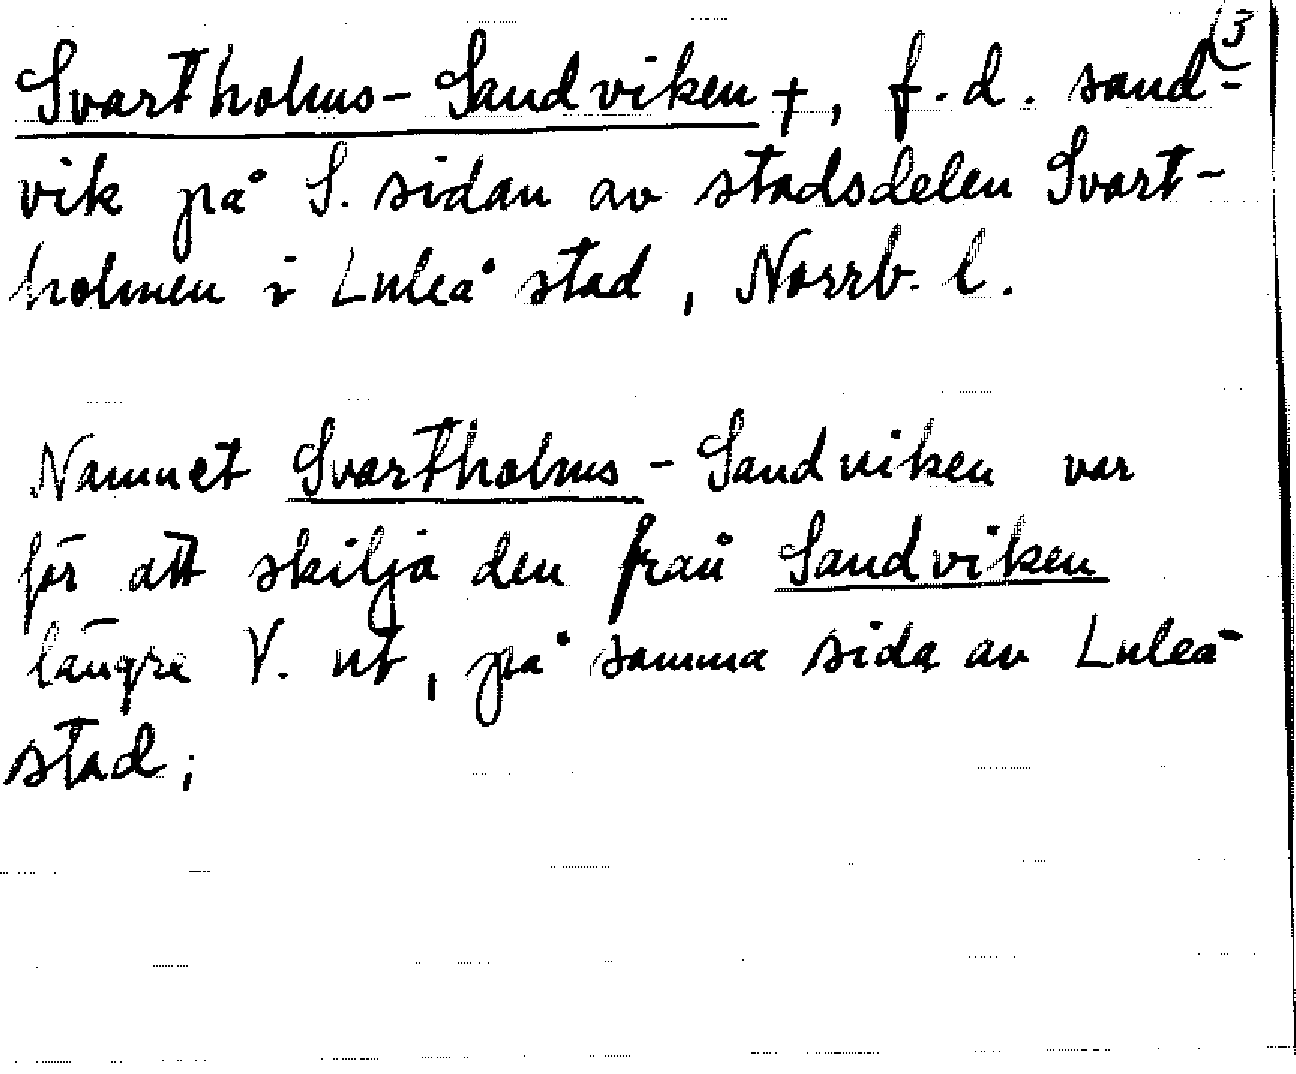 (3
Svartholms-Sandviken †, f.d. sand-
vik på S. sidan av stadsdelen Svart-
holmen i Luleå stad, Norrb. l.
Namnet Svartholms-Sandviken var
för att skilja den från Sandviken
längre V. ut, på samma sida av Luleå
stad;